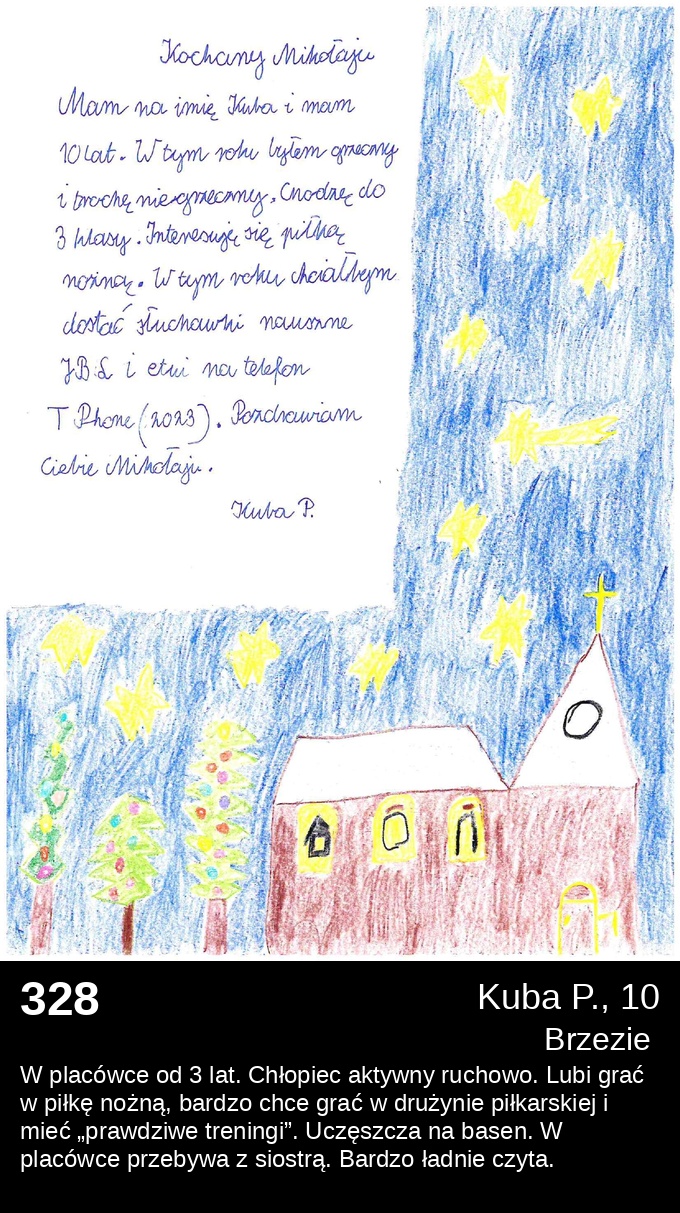 Kochany Mikołaju
Mam na imię Kuba i mam
10 lat. W tym roku byłem grzeczny
i trochę niegrzeczny. Chodzę do
3 klasy. Interesuję się piłką
nożną. W tym roku chciałbym
dostać słuchawki nauszne
JBL i etui na telefon
T Phone (2023). Pozdrawiam
Ciebie Mikołaju.
Kuba P.
328
Kuba P., 10
Brzezie
W placówce od 3 lat. Chłopiec aktywny ruchowo. Lubi grać
w piłkę nożną, bardzo chce grać w drużynie piłkarskiej i
mieć „prawdziwe treningi”. Uczęszcza na basen. W
placówce przebywa z siostrą. Bardzo ładnie czyta.